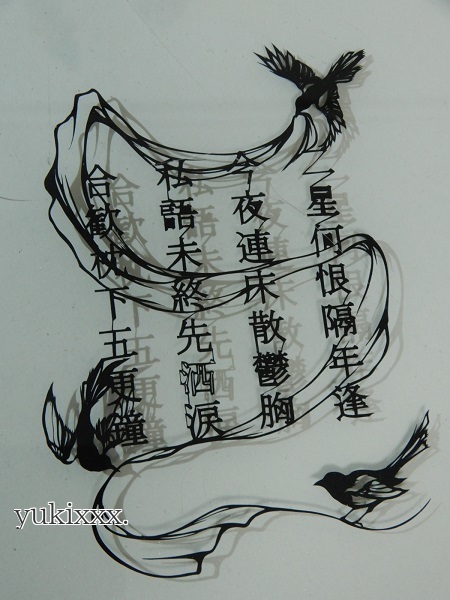 二星何恨隔年逢
今夜連床散鬱胸
私語未終先洒涙
合歓枕下五更鐘
yukixxx.